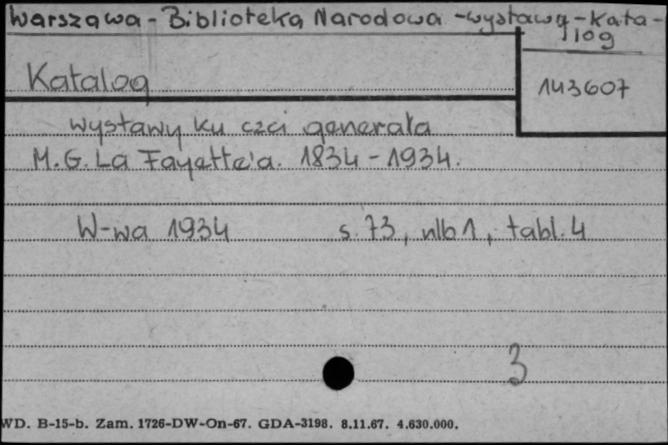 Warszawa - Biblioteka Narodowa - wystawy - kata-
log
Katalog
143607
wystawy ku czci generała
M. G. La Fayette'a. 1834 - 1934.
W-wa 1934 s. 73, nlb 1, tabl. 4
3
WD. B-15-b. Zam. 1726-DW-On-67. GDA-3198. 8.11.67. 4.630.000.